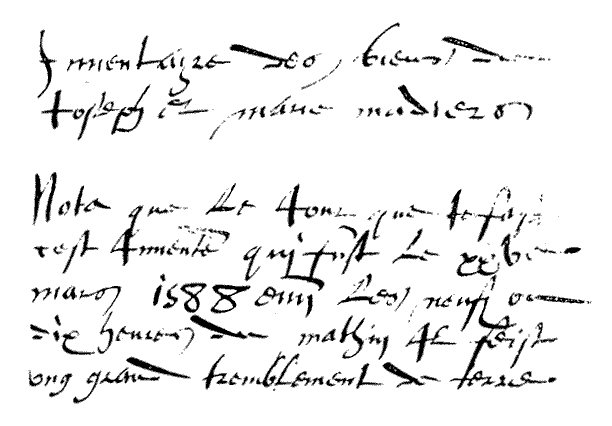 Inventayre des biens de
Joseph et marie madiers
Nota que le Jour que Je fays
cest Inventė quy fust le xxve
mars 1588 envi les neuf ou
dix heures de mathin Il feist
ung grand tremblement de terre